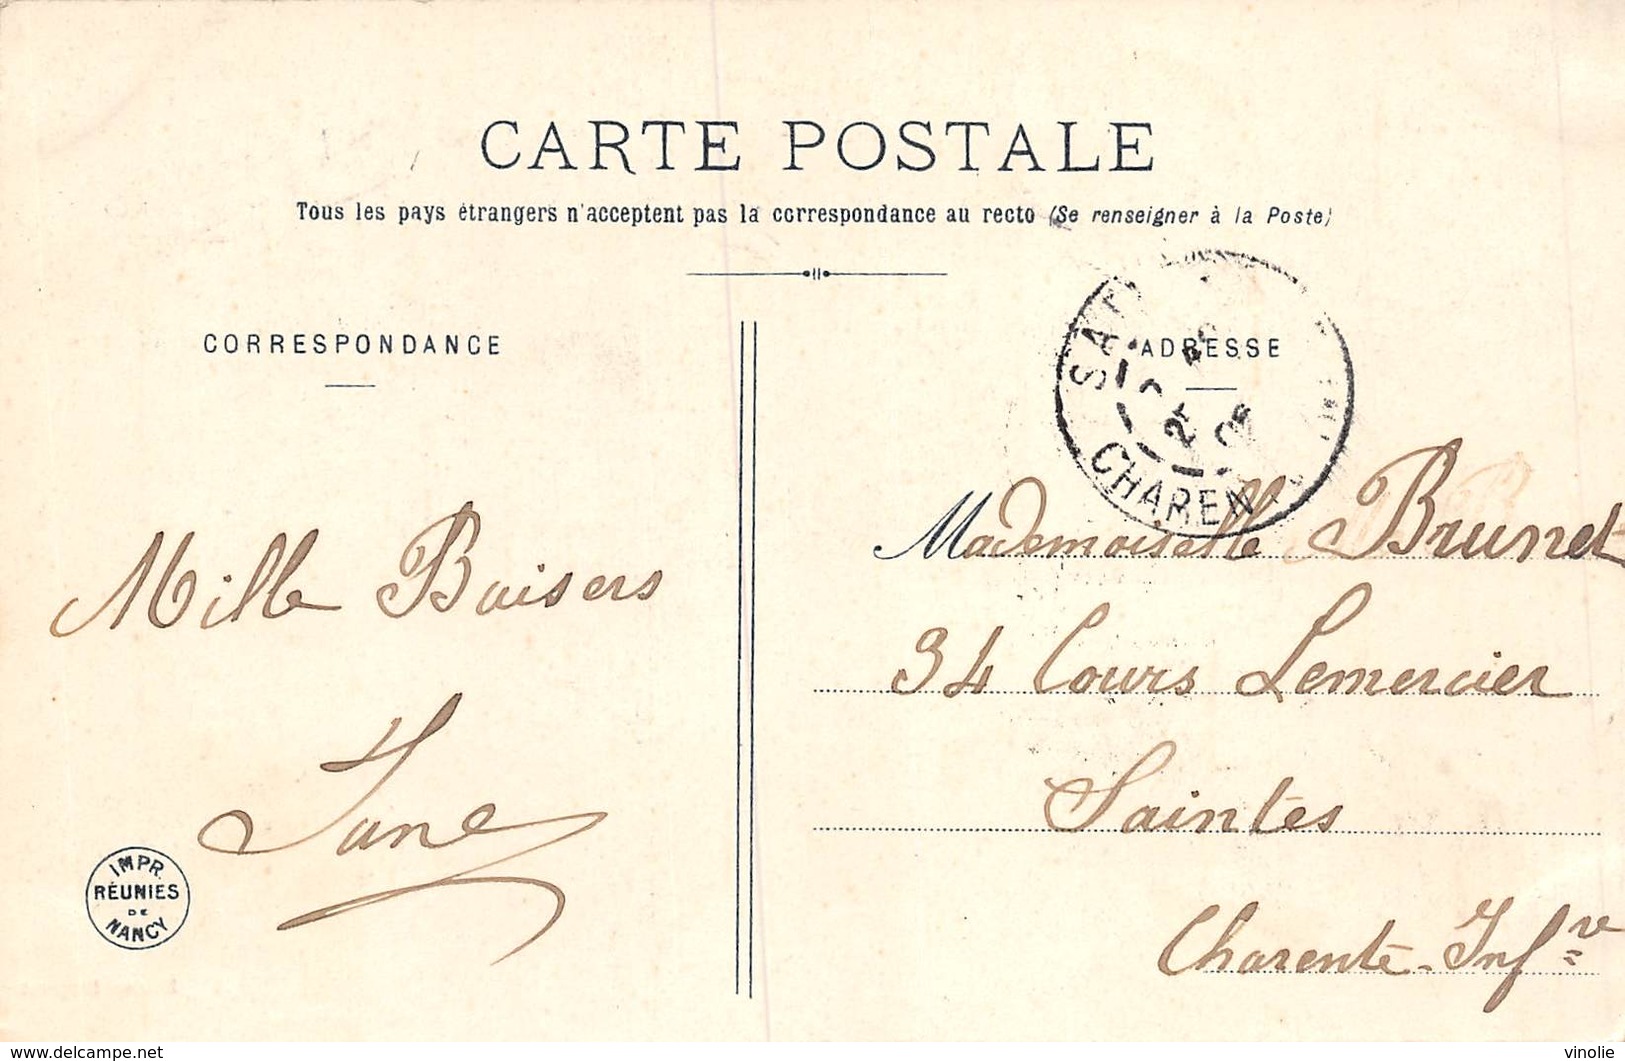 CARTE POSTALE
Tous les pays étrangers n'acceptent pas la correspondance au recto (Se renseigner à la Poste)
CORRESPONDANCE
ADRESSE
Mille Baisers
Jane
Mademoiselle Brunet
34 Cours Lemercier
Saintes
Charente-Infre
IMPR.
RÉUNIES
DE
NANCY
© delcampe.net
vinolie